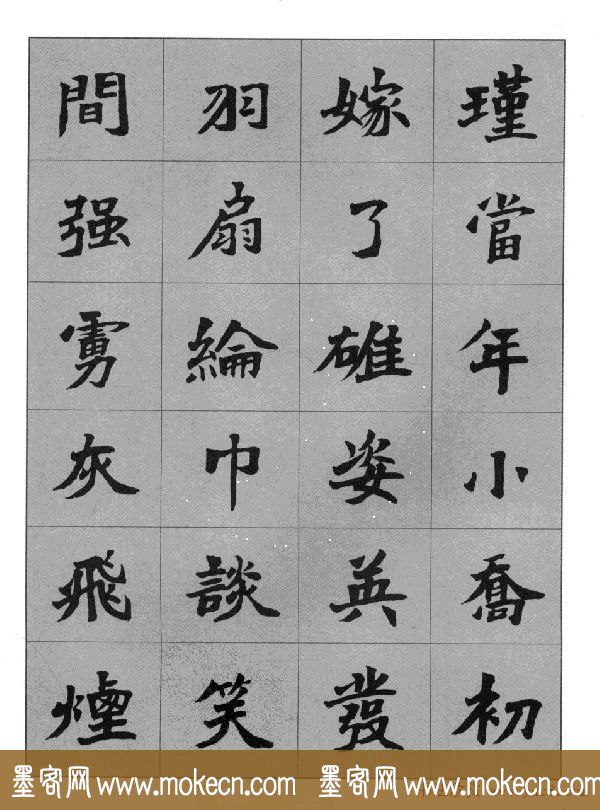 瑾當年小喬初
嫁了雄姿英發
羽扇綸巾談笑
間强虜灰飛煙
墨客网 www.mokecn.com 墨客网 www.mokecn.com